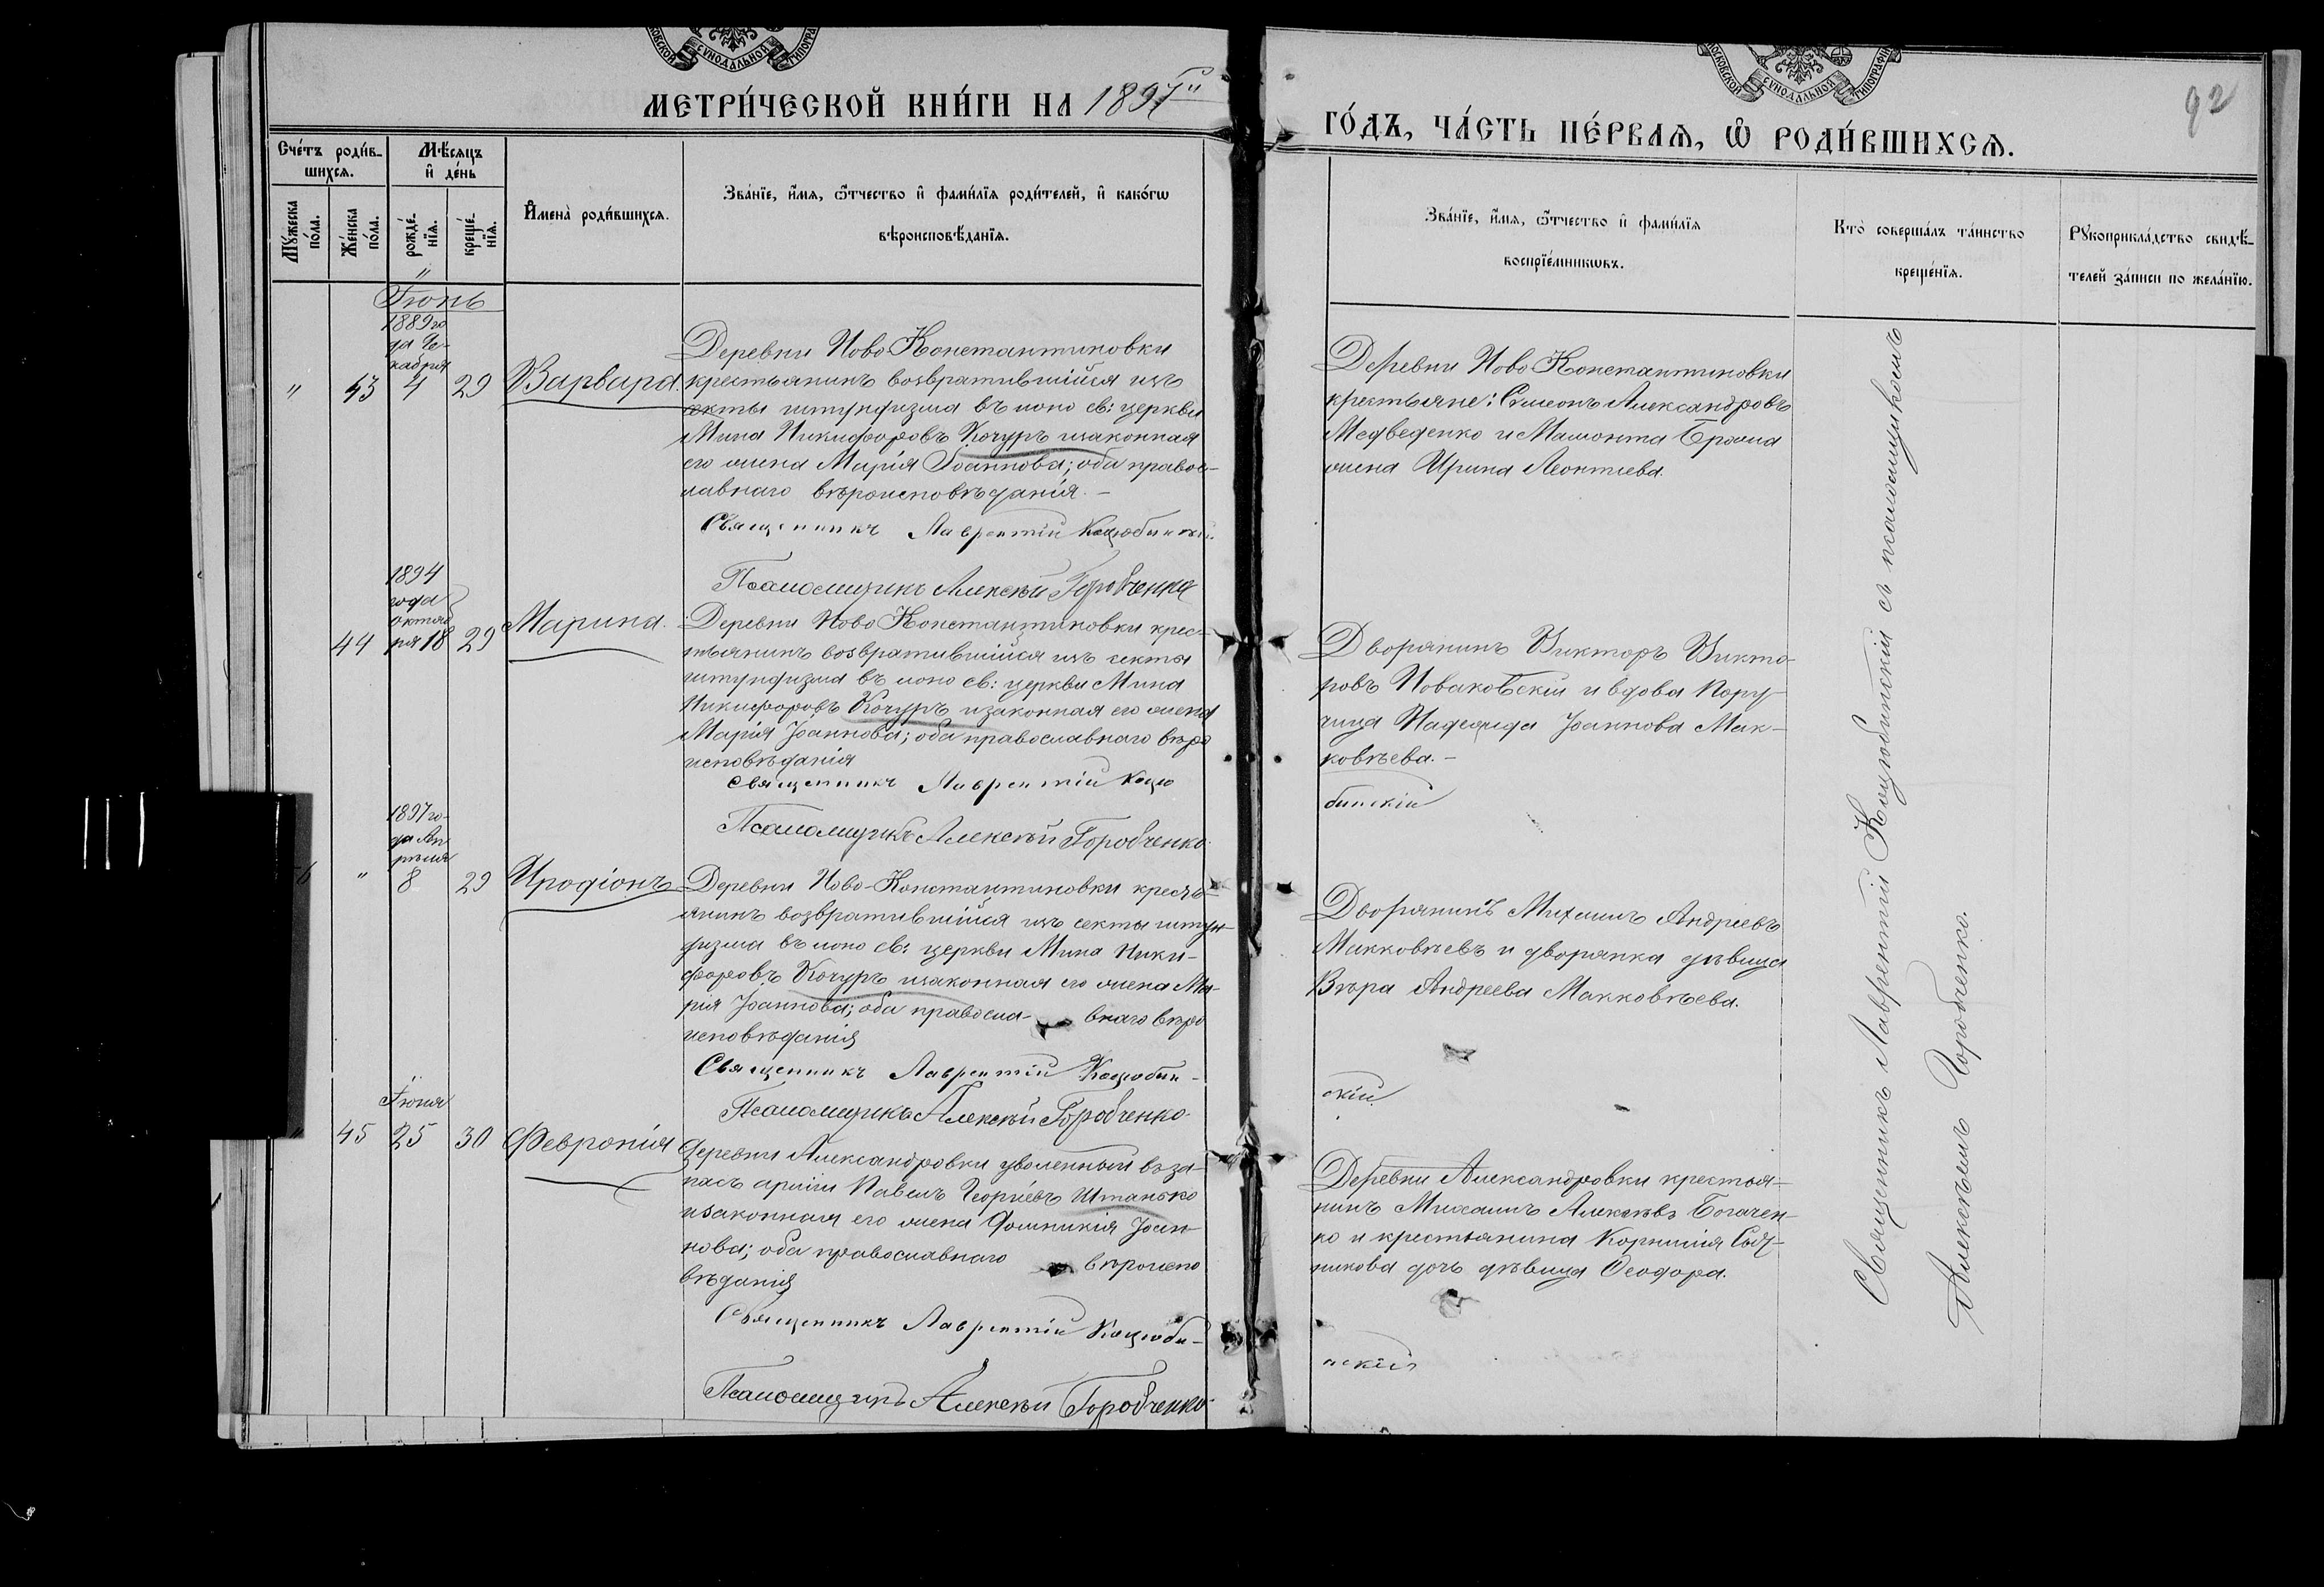 МЕТРИ́ЧЕСКОЙ КНИ́ГИ НА 1897
ГО́ДЪ, ЧА́СТЬ ПЕ́РВАѦ, Ѡ҆ РОДИ́ВШИХСѦ.
92
Сче́тъ роди́в-
шихсѧ.
Мѣ́сѧцъ
и҆ де́нь
Мꙋ́жеска
по́ла.
Же́нска
по́ла.
рожде́-
нїѧ.
креще́-
нїѧ.
И҆мена̀ роди́вшихсѧ.
Зва́нїе, и҆́мѧ, ѻ҆́тчество и҆ фами́лїѧ роди́телей, и҆ како́гѡ
вѣроисповѣ́данїѧ.
Зва́нїе, и҆́мѧ, ѻ҆́тчество и҆ фами́лїѧ
воспрїе́мникѡвъ.
Кто̀ соверша́лъ та́инство
креще́нїѧ.
Рꙋкоприкла́дство свидѣ́-
телей за́писи по жела́нїю.
Іюнь
1889 го
да Де-
кабря
" 43 4 29 Варвара.
Деревни Ново Константиновки
крестьянинъ возвратившійся изъ
секты штундизма въ лоно св: церкви
Мина Никифоровъ Кочуръ и законная
его жена Марія Іоаннова; оба правос-
лавнаго вѣроисповѣданія. -
Священникъ Лаврентій Коцюбинскій.
Псаломщикъ Алексѣй Горобченко
Деревни Ново Константиновки
крестьяне: Симеонъ Александровъ
Медведенко и Мамонта Ерома
жена Ирина Леонтиева.
1894
года
октяб
ря
44 18 29 Марина.
Деревни Ново Константиновки крес-
тьянинъ возвратившійся изъ секты
штундизма въ лоно св: церкви Мина
Никифоровъ Кочуръ и законная его жена
Марія Іоаннова; оба православнаго вѣро
исповѣданія
Священникъ Лаврентій Коцю
бинскій
Псаломщикъ Алексѣй Горобченко.
Дворянинъ Викторъ Викто-
ровъ Новаковскій и вдова пору-
чица Надежда Іоаннова Мак-
ковѣева. -
1897 го-
да Ап
рѣля
" 8 29 Иродіонъ
Деревни Ново-Константиновки кресть-
янинъ возвратившійся изъ секты штун-
дизма въ лоно св: церкви Мина Ники-
форовъ Кочуръ и законная его жена Ма-
рія Іоаннова; оба правосла- внаго вѣро
исповѣданія
Священникъ Лаврентій Коцюбин-
скій.
Псаломщикъ Алексѣй Горобченко
Дворянинъ Михаилъ Андреевъ
Макковѣевъ и дворянка дѣвица
Вѣра Андреева Макковѣева.
Іюня
45 25 30 Февронія
Деревни Александровки уволенный въ за-
пасъ арміи Павелъ Георгіевъ Штанько
и законная его жена Домникія Іоан-
нова; оба православнаго вѣроиспо
вѣданія
Священникъ Лаврентій Коцюби-
нскій
Псаломщикъ Алексѣй Горобченко
Деревни Александровки крестья-
нинъ Михаилъ Алексѣевъ Богачен-
ко и крестьянина Корнилія
никова дочь дѣвица Ѳеодора.
Священникъ Лаврентій Коцюбинскій съ псаломщикомъ
Алексѣемъ Горобченко.